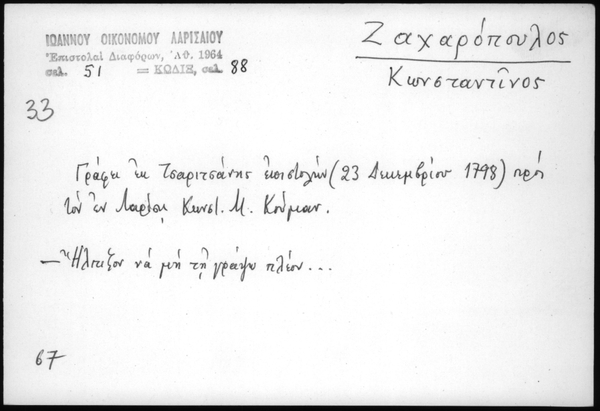 ΙΩΑΝΝΟΥ ΟΙΚΟΝΟΜΟΥ ΛΑΡΙΣΑΙΟΥ
Ἐπιστολαὶ Διαφόρων, Ἀθ. 1964
σελ. 51 = ΚΩΔΙΞ, σελ. 88
Ζαχαρόπουλος
Κωνσταντῖνος
33
Γράφει ἐκ Τσαριτσάνης ἐπιστολήν (23 Δεκεμβρίου 1798) πρός
τὸν ἐν Λαρίσῃ Κωνστ. Μ. Κούμαν.
— Ἤλπιζον νά μή τῇ γράψω πλέον...
67